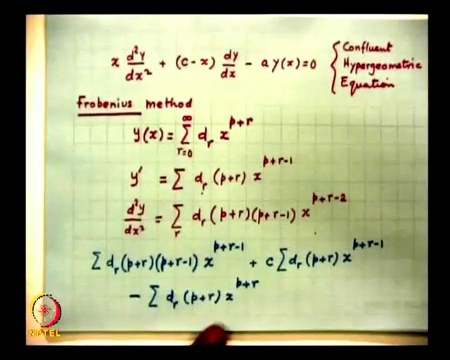 x d²y/dx² + (c-x) dy/dx - a y(x)=0 { Confluent
Hypergeometric
Equation
Frobenius method
y(x) = ∑_{r=0}^{∞} d_r x^{p+r}
y' = ∑ d_r (p+r) x^{p+r-1}
d²y/dx² = ∑_r d_r (p+r)(p+r-1) x^{p+r-2}
∑ d_r (p+r)(p+r-1) x^{p+r-1} + c ∑ d_r (p+r) x^{p+r-1}
- ∑ d_r (p+r) x^{p+r}
NPTEL